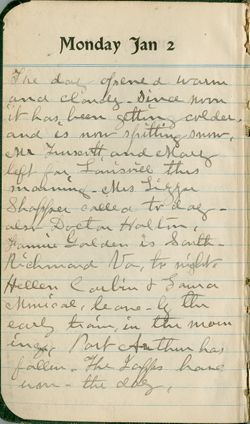 Monday Jan 2
The day opened warm
and cloudy - Since noon
it has been getting colder,
and is now spitting snow,
Mr and Mary
left for this
morning - Mrs
Shaffer called to day -
also Doctor
is South
Richmond Va, to night.
Hellen & Laura
leave by the
early train, in the morn
ing, Port Arthur has
fallen. The Japps have
won - the day,